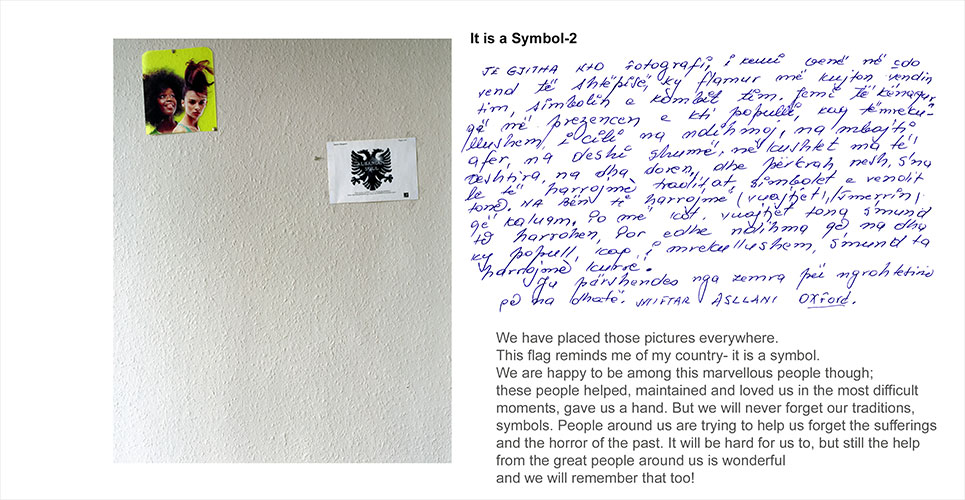 It is a Symbol-2
TE GJITHA KTO fotografi, i kemi venë në çdo
vend të shkëpisë, ky flamur më kujton vendin
tim, simbolin e kombit tim. Jemë të kënaqur,
që më prezencen e kti populli, kaq të mreku-
llushem, i cili na ndihmoj, na mbajti
afer, na deshi shumë, në kushtet ma të
veshtira, na dha doren, dhe përkrah nesh, s'na
le të harrojmë traditat, simbolet e vendit
tonë. NA Bën të harrojmë (vuajtjet), tmerrin,
që kaluam. Po më kot, vuajtjet tona s'mund
të harrohen, Por edhe ndihma që na dha
ky popull, kaq i mrekullushem, s'mund ta
harrojmë kurrë.
Ju përshendes nga zemra për ngrohtësinë
që na dhatë. MIFTAR ASLLANI Oxford.
We have placed those pictures everywhere.
This flag reminds me of my country- it is a symbol.
We are happy to be among this marvellous people though;
these people helped, maintained and loved us in the most difficult
moments, gave us a hand. But we will never forget our traditions,
symbols. People around us are trying to help us forget the sufferings
and the horror of the past. It will be hard for us to, but still the help
from the great people around us is wonderful
and we will remember that too!